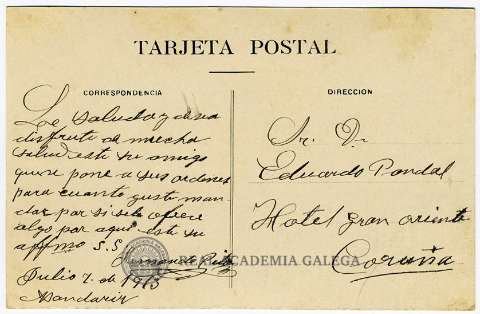 TARJETA POSTAL
CORRESPONDENCIA
Le saluda y desea
disfrute de mucha
salud este su amigo
que se pone a sus ordenes
para cuanto guste man
dar por si se le ofrece
algo por aqui este su
affmo S.S.
Julio 7 de 1913
Mondariz
DIRECCION
Sr. D.
Eduardo Pondal
Hotel gran oriente
Coruña
REAL ACADEMIA GALEGA